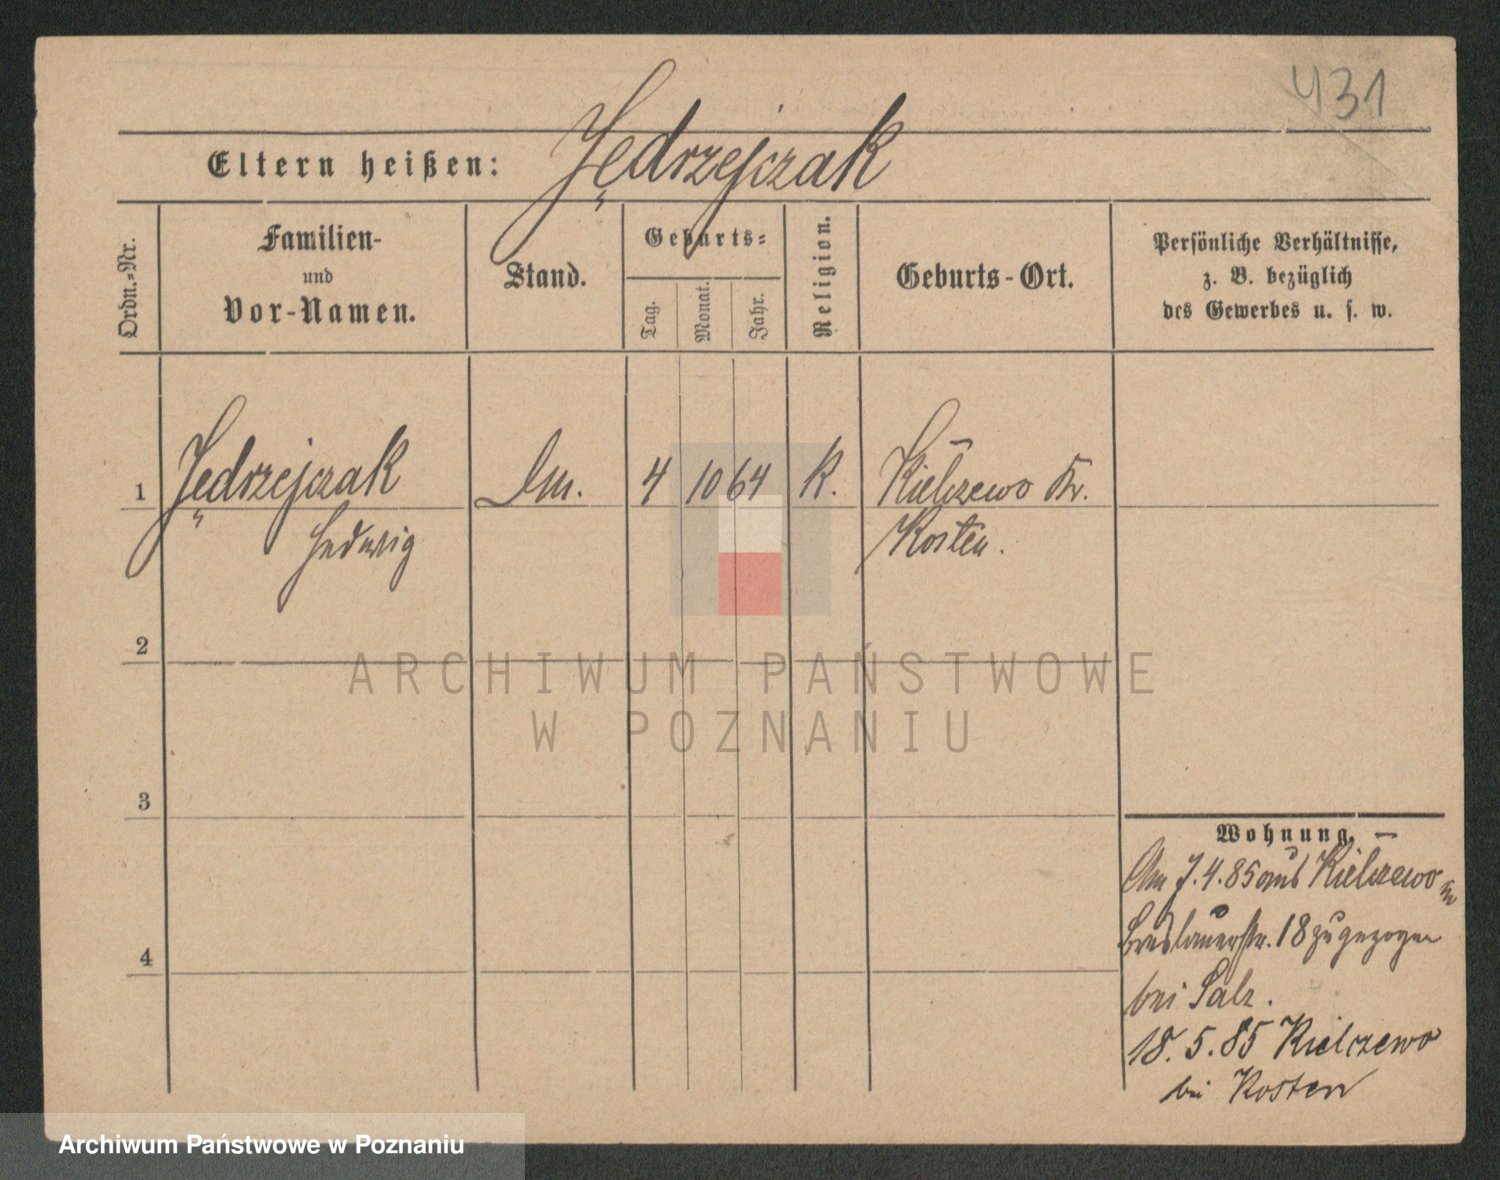 431
Eltern heißen: Jędrzejczak
Ordn.-Nr.
Familien-
und
Vor-Namen.
Stand.
Geburts-
Tag.
Monat.
Jahr.
Religion.
Geburts-Ort.
Persönliche Verhältnisse,
z. B. bezüglich
des Gewerbes u. s. w.
1 Jędrzejczak 4 10 64 K. Kiełczewo Kr.
Hedwig Kosten.
2
3
4
ARCHIWUM PAŃSTWOWE
W POZNANIU
Wohnung.
Am 7.4.85 aus Kiełczewo
Breslauerstr. 18 zugezogen
bei Salz.
18.5.85 Kielczewo
bei Kosten
Archiwum Państwowe w Poznaniu